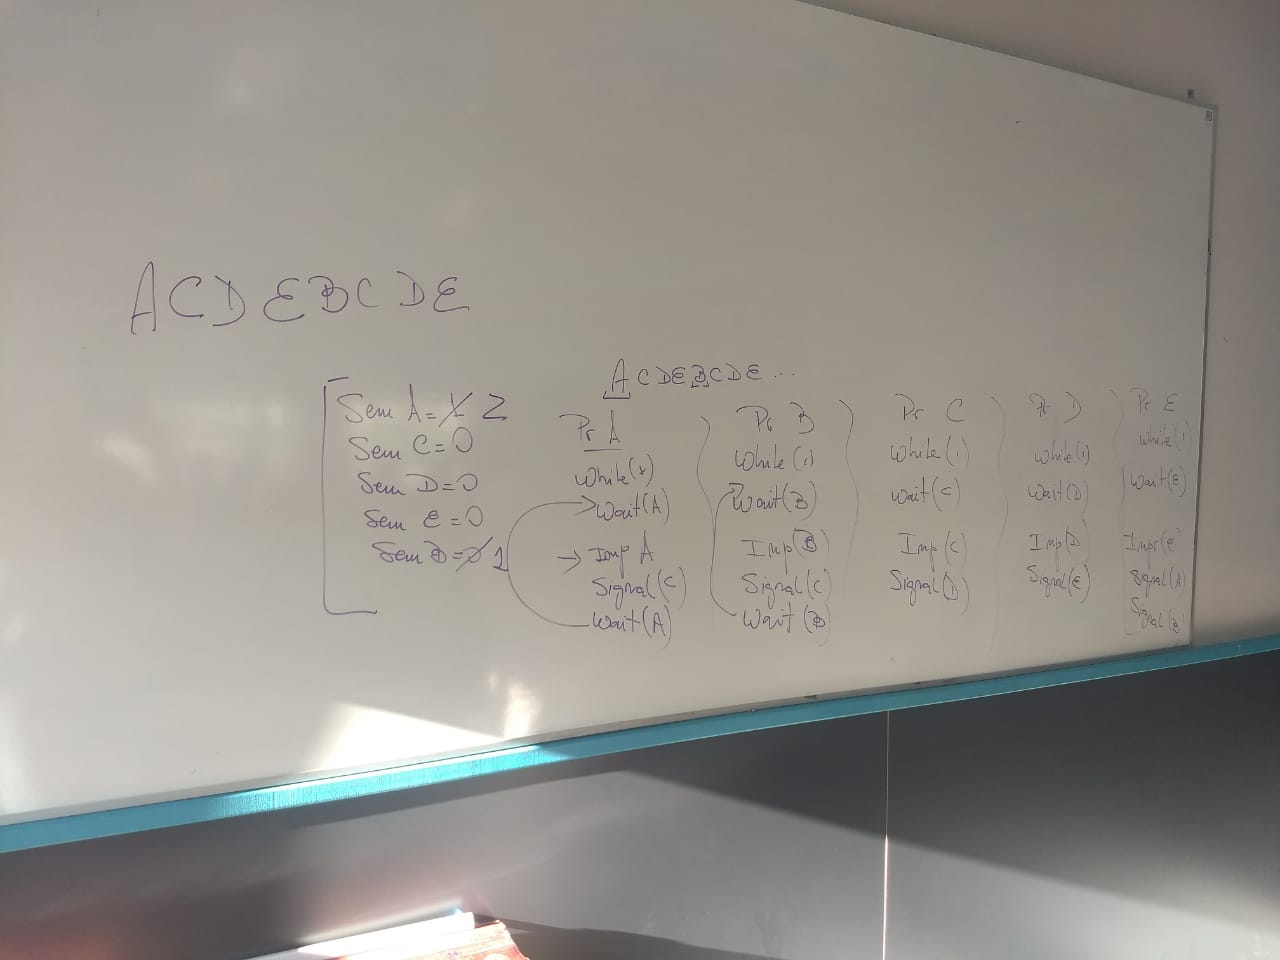 ACDEBCDE
ACDEBCDE...
Sem A = 1 2
Sem C = 0
Sem D = 0
Sem E = 0
Sem B = 0 1
Pr A
While(1)
Wait(A)
Imp A
Signal(C)
Wait(A)
Pr B
While(1)
Wait(B)
Imp(B)
Signal(C)
Wait(B)
Pr C
While(1)
Wait(C)
Imp(C)
Signal(D)
Pr D
While(1)
Wait(D)
Imp(D)
Signal(E)
Pr E
While(1
Wait(E)
Impr(E)
Signal(A)
Signal(B)